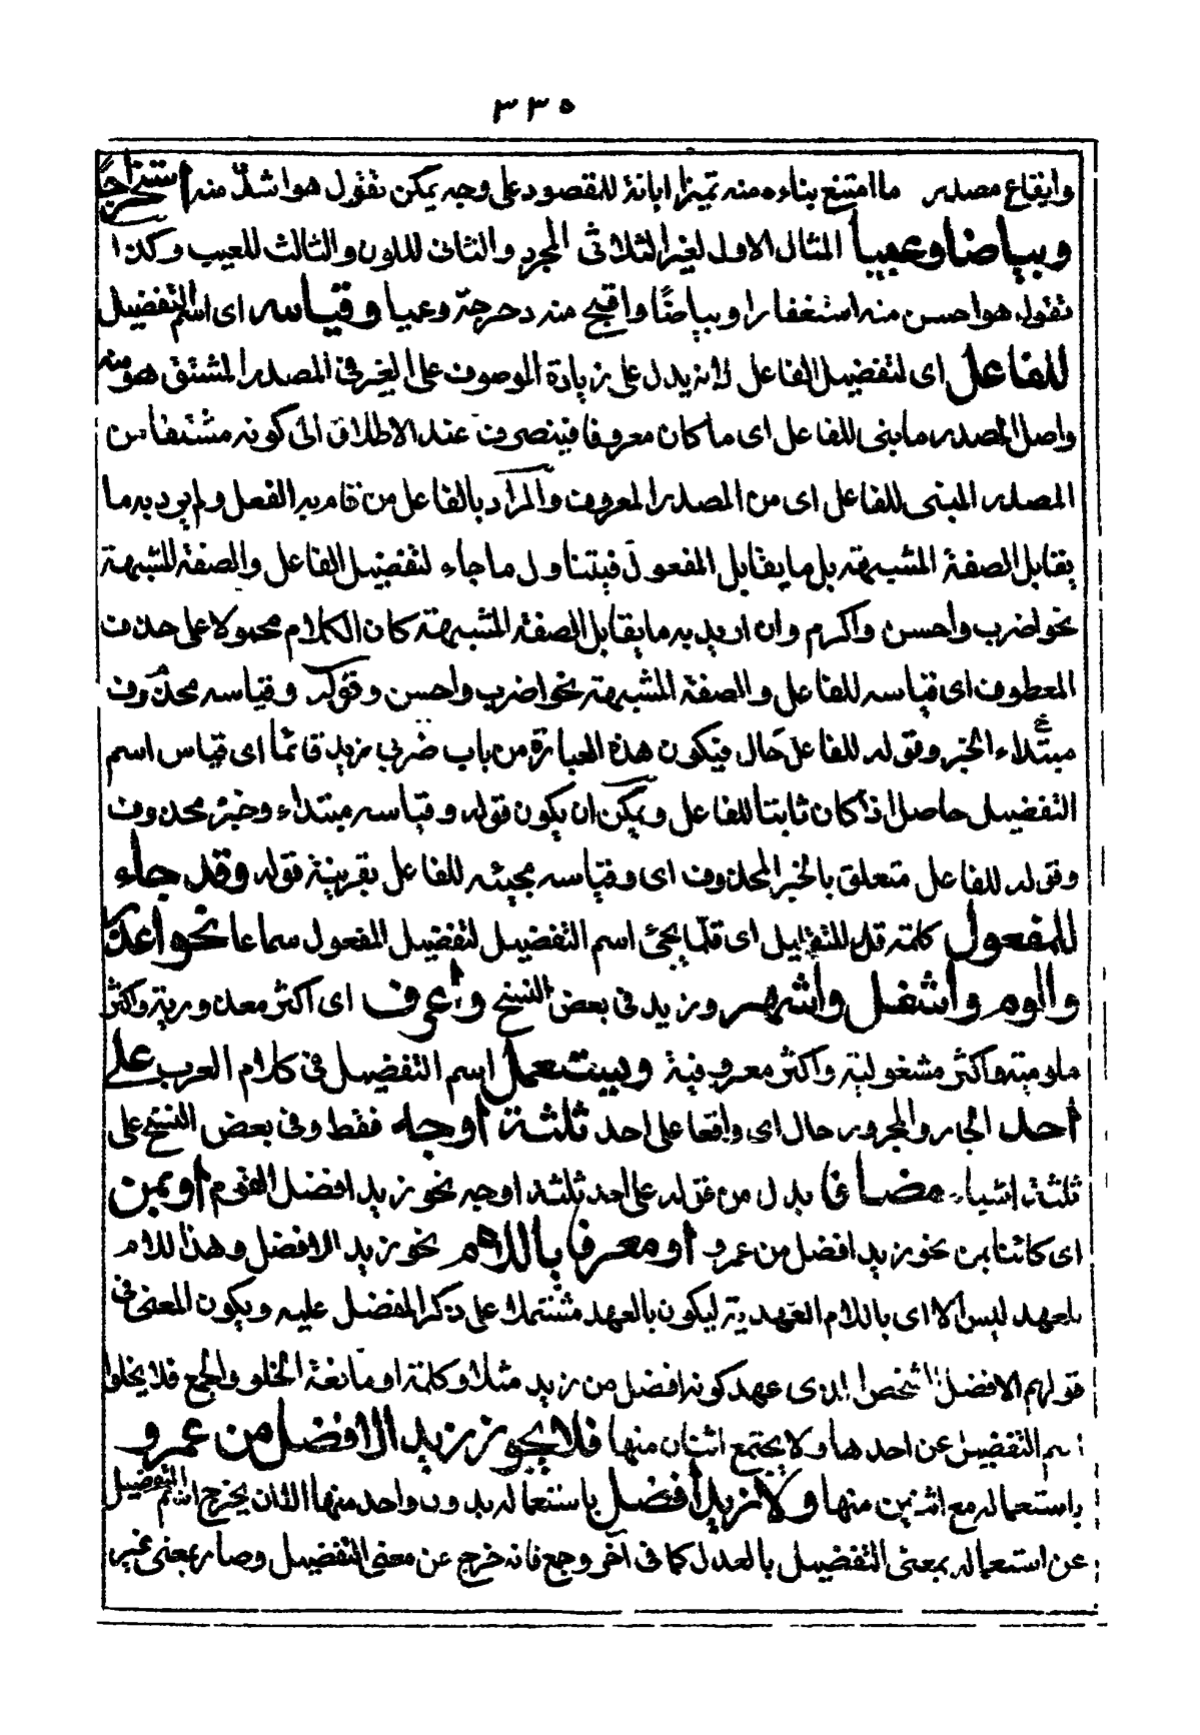 ٣٣٥
وايقاع مصدر ما امتنع بناءه منه تميزا ابانة للمقصود على وجه يمكن تقول هو اشدّ منه استخراجاً
وبياضا وعميا المثال الاول لغير الثلاثى المجرد والثانى للون والثالث للعيب وكذا
تقول هو احسن منه استغفارا وبياضًا واقبح منه دحرجة وعميا وقياسه اى اسم التفضيل
للفاعل اى لتفضيل الفاعل لانه يدل على زيادة الموصوف على الغير فى المصدر المشتق هو منه
واصل المصدر ما بنى للفاعل اى ما كان معروفا فينصرف عند الاطلاق الى كونه مشتقا من
المصدر المبنى للفاعل اى من المصدر المعروف والمراد بالفاعل من قام به الفعل ولم يرد به ما
يقابل الصفة المشبهة بل ما يقابل المفعول فيتناول ما جاء لتفضيل الفاعل والصفة المشبهة
نحو اضرب واحسن واكرم وان اريد به ما يقابل الصفة المشبهة كان الكلام محمولا على حذف
المعطوف اى قياسه للفاعل والصفة المشبهة نحو اضرب واحسن وقوله وقياسه محذوف
مبتداء الخبر وقوله للفاعل حال فيكون هذه العبارة من باب ضربى زيد قائما اى قياس اسم
التفضيل حاصل اذا كان ثابتا للفاعل ويمكن ان يكون قوله وقياسه مبتداء وخبره محذوف
وقوله للفاعل متعلق بالخبر المحذوف اى وقياسه مجيئه للفاعل بقرينة قوله وقد جاء
للمفعول كلمة قد للتقليل اى قلّما يجئ اسم التفضيل لتفضيل المفعول سماعا نحو اعذر
والوم واشغل واشهر وزيد فى بعض النسخ واعرف اى اكثر معذورية واكثر
ملومية واكثر مشغولية واكثر معروفية ويستعمل اسم التفضيل فى كلام العرب على
أحد الجار والمجرور حال اى واقعا على احد ثلثة أوجه فقط وفى بعض النسخ على
ثلثة اشياء مضافا بدل من قوله على احد ثلثة اوجه نحو زيد افضل القوم أو بمن
اى كائنا بمن نحو زيد افضل من عمرو أو معرفا باللام نحو زيد الافضل وهذا للام
للعهد ليس الا اى باللام العهدية ليكون بالعهد مشتملا على ذكر المفضل عليه ويكون المعنى فى
قولهم الافضل الشخص الذى عهد كونه افضل من زيد مثلا وكلمة او مانعة الخلو والجمع فلا يخلوا
اسم التفضيل عن احدها ولا يجتمع اثنان منها فلا يجوز زيد الافضل من عمرو
باستعماله مع اثنين منها ولا زيد أفضل باستعماله بدون واحد منها الا ان يخرج اسم التفضيل
عن استعماله بمعنى التفضيل بالعدل كما فى آخر وجمع فانه خرج عن معنى التفضيل وصار بمعنى غير